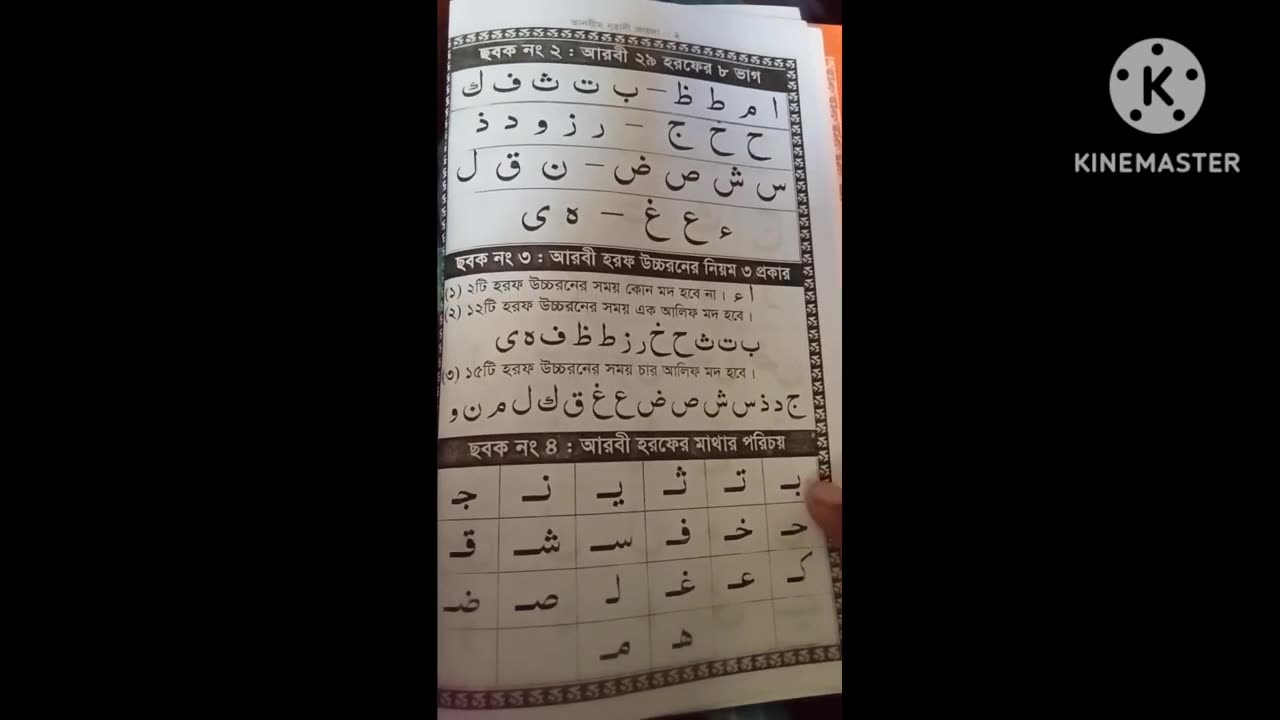 তানযীম নূরানী কায়দা - ২
ছবক নং ২ : আরবী ২৯ হরফের ৮ ভাগ
ا م ط ظ – ب ت ث ف ك
ح خ ج – ر ز و د ذ
س ش ص ض – ن ق ل
ء ع غ – ه ى
ছবক নং ৩ : আরবী হরফ উচ্চরনের নিয়ম ৩ প্রকার
(১) ২টি হরফ উচ্চরনের সময় কোন মদ হবে না। ا ء
(২) ১২টি হরফ উচ্চরনের সময় এক আলিফ মদ হবে।
ب ت ث ح خ ر ز ط ظ ف ه ى
(৩) ১৫টি হরফ উচ্চরনের সময় চার আলিফ মদ হবে।
ج د ذ س ش ص ض ع غ ق ك ل م ن و
ছবক নং ৪ : আরবী হরফের মাথার পরিচয়
بـ تـ ثـ يـ نـ جـ
حـ خـ فـ سـ شـ قـ
كـ عـ غـ لـ صـ ضـ
هـ مـ
K
KINEMASTER